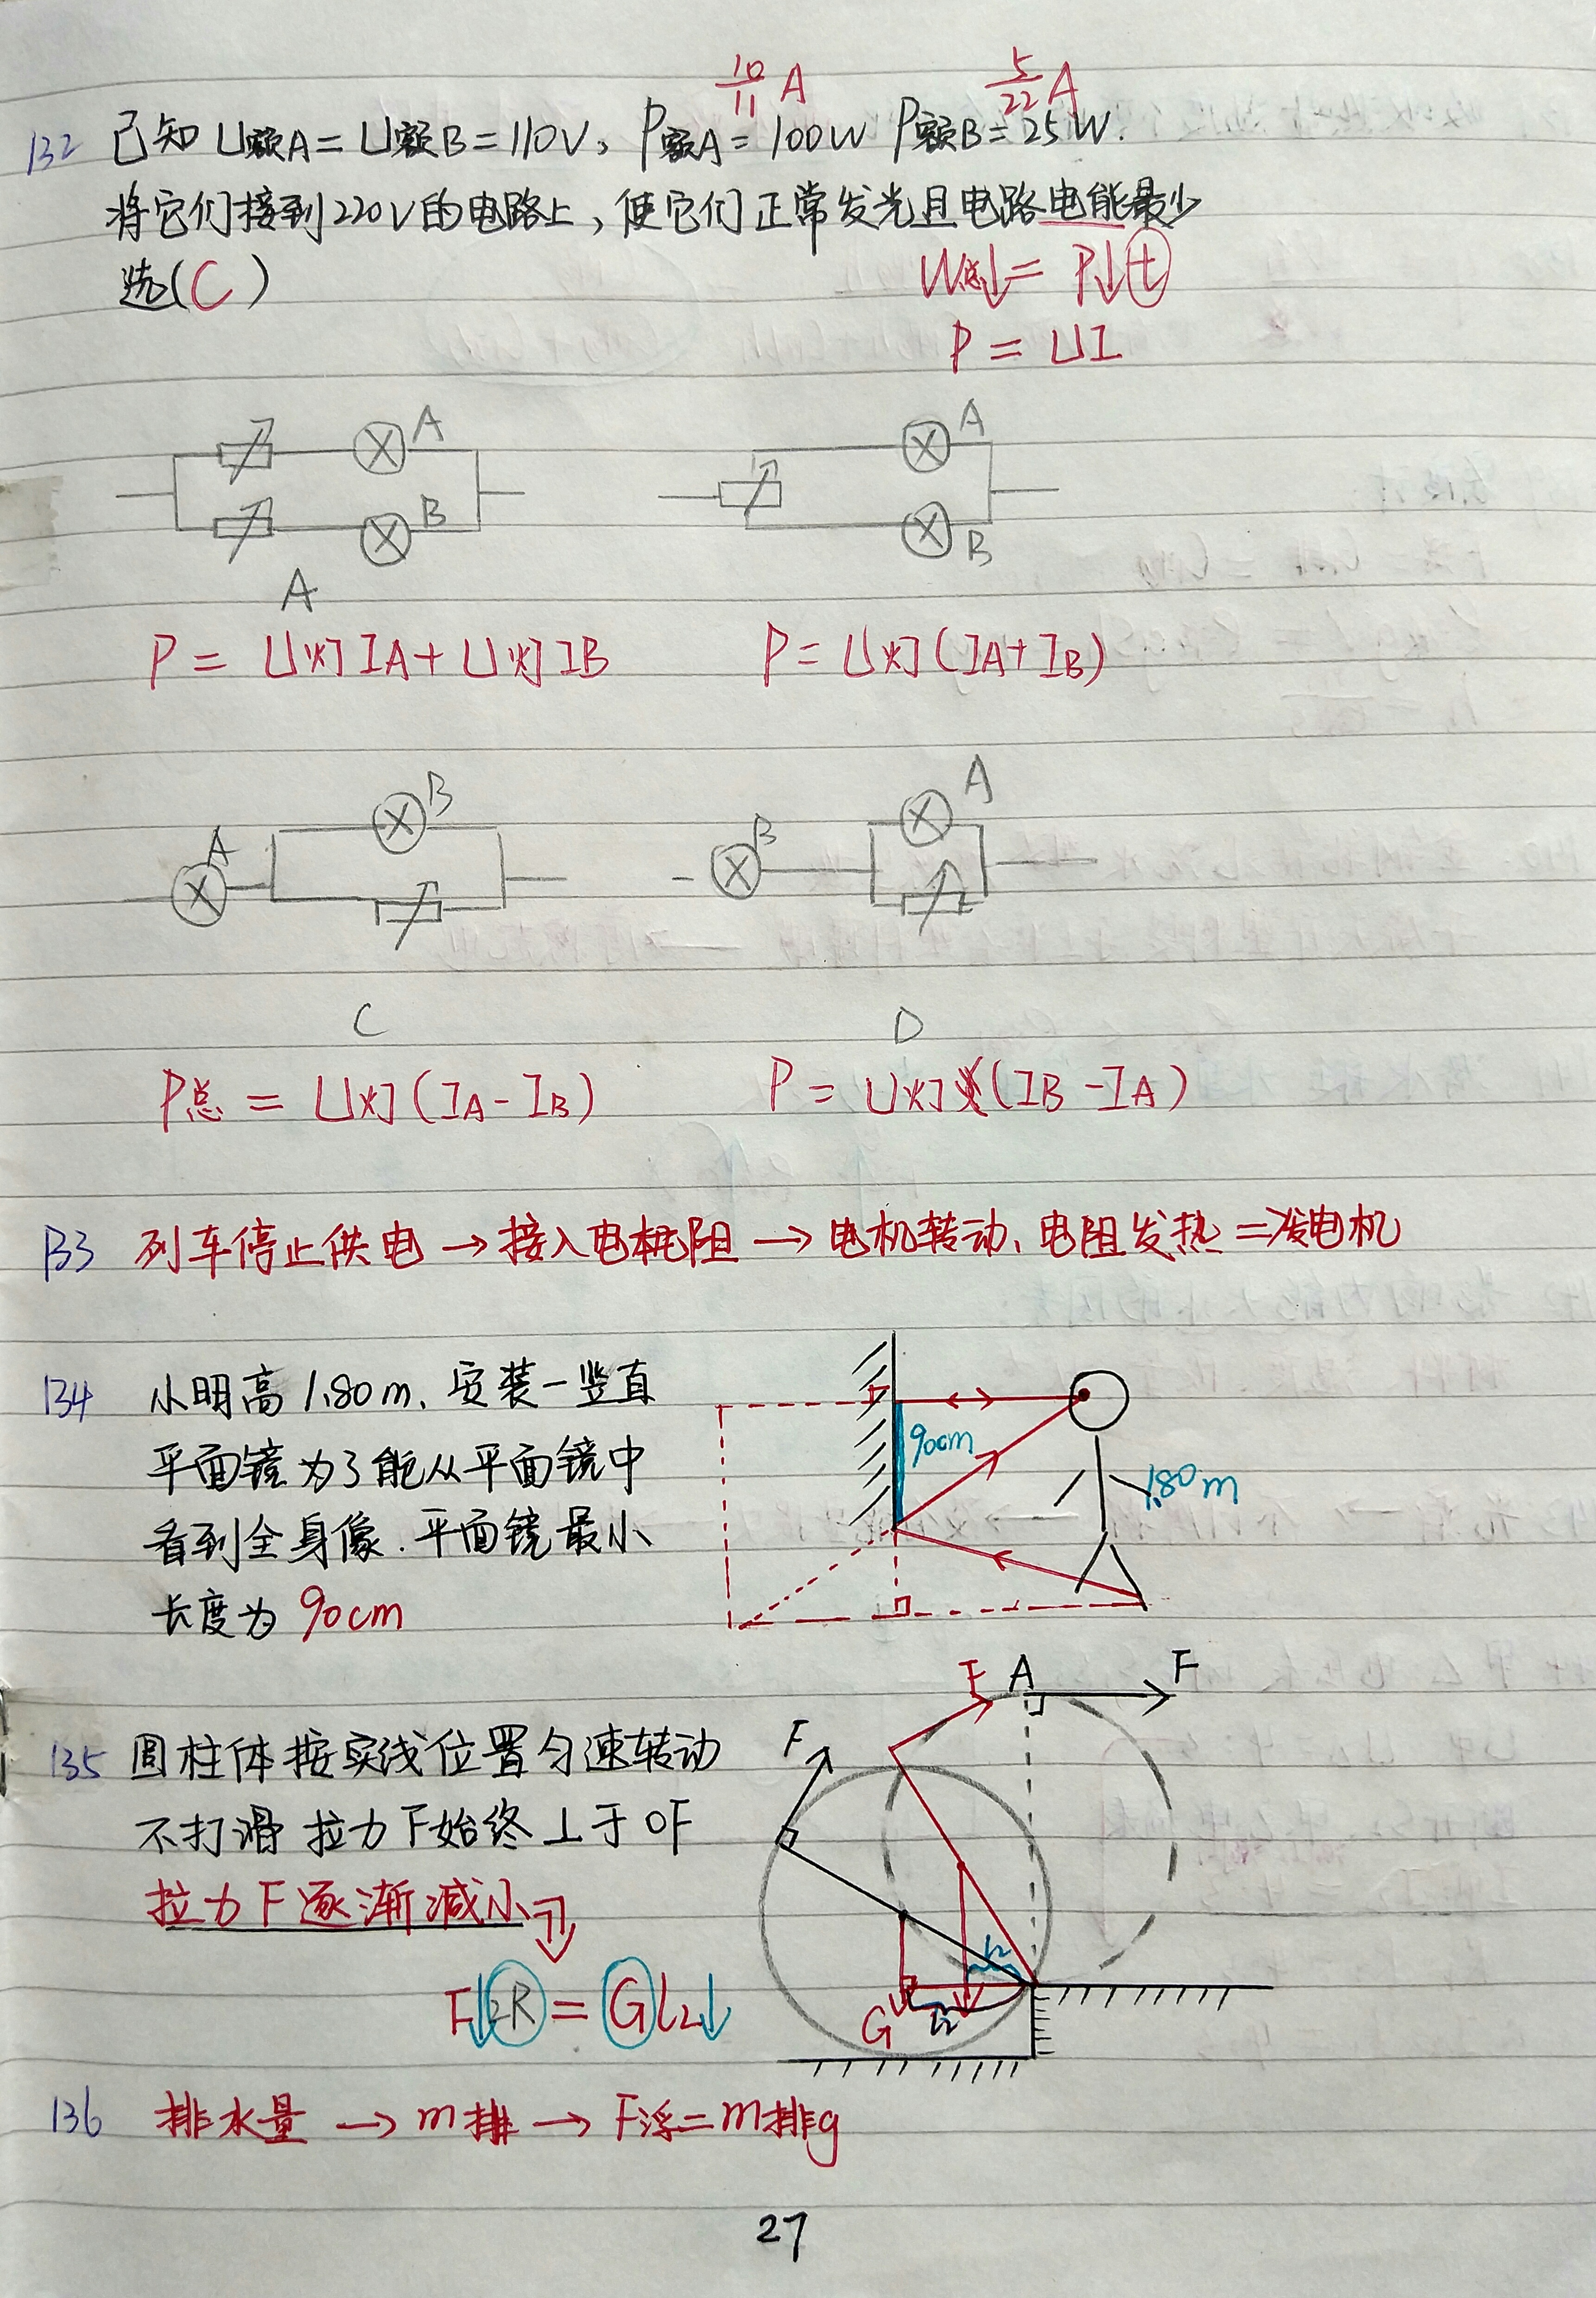 10/11 A 5/22 A
132 已知 U额A=U额B=110V, P额A=100W P额B=25W.
将它们接到220V的电路上,使它们正常发光且电路电能最少
选(C)
W总↓=P↓t
P=UI
A A
B B
A
P=U灯IA+U灯IB P=U灯(IA+IB)
B A
A B
C D
P总=U灯(IA-IB) P=U灯(IB-IA)
133 列车停止供电→接入电阻→电机转动、电阻发热=发电机
134 小明高1.80m,安装一竖直
平面镜为了能从平面镜中
看到全身像.平面镜最小
长度为90cm
90cm
1.80m
135 圆柱体按实线位置匀速转动
不打滑 拉力F始终⊥于OF
拉力F逐渐减小
F↓2R=GL2↓
F A F
F
L2
G L2
136 排水量→m排→F浮=m排g
27